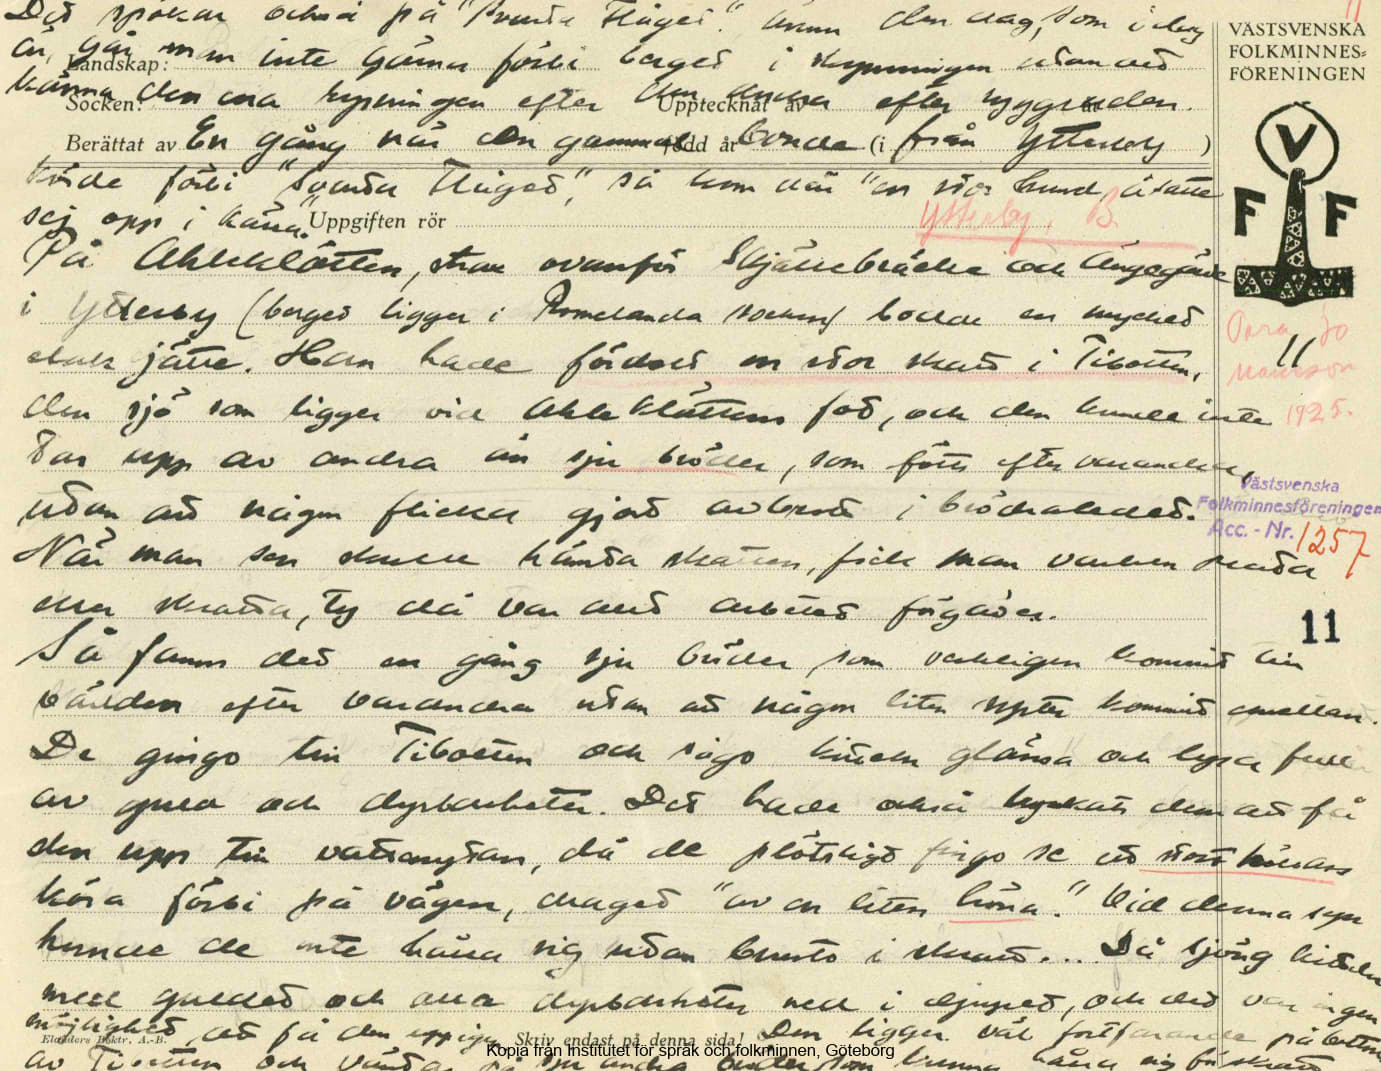 Det spökar också på "Svarta Häged." ännu den dag, som i dag
är, går man inte gärna förbi berget i skymningen utan att
känna den ena rysningen efter den andra efter ryggraden.
Landskap:
Socken:
Upptecknat av
år
Berättat av
född år
(i
)
En gång när den gamme bonde från Ytterby
körde förbi "Svarta Häged", så kom där "en stor hund å satte
sej opp i kärra."
Uppgiften rör
Ytterby. B.
På Ahleklätten, strax ovanför Skjällebräcke och Ängegärde
i Ytterby (berget ligger i Romelanda socken) bodde en mycket
elak jätte. Han hade fördolt en stor skatt i Tibotten,
den sjö som ligger vid Ahleklättens fot, och den kunde inte
tas upp av andra än sju bröder, som fötts efter varandra,
utan att någon flicka gjort avbrott i brödraledet.
När man sen skulle hämta skatten, fick man varken prata
eller skratta, ty då var allt arbetet förgäves.
Så fanns det en gång sju bröder som verkligen kommit till
världen efter varandra utan att någon liten syster kommit emellan.
De gingo till Tibotten och sågo kitteln glänsa och lysa full
av guld och dyrbarheter. Det hade också lyckats dem att få
den upp till vattenytan, då de plötsligt fingo se ett stort hölass
köra förbi på vägen, draget "av en liten höna." Vid denna syn
kunde de inte hålla sig utan brusto i skratt.... Då sjönk kitteln
med guldet och alla dyrbarheter ned i djupet, och det var ingen
möjlighet att få den upp igen. Den ligger väl fortfarande på botten
av Tibotten och väntar på sju andra bröder, som kunna hålla sig för skratt
Elanders Boktr. A.-B.
Skriv endast på denna sida!
Kopia från Institutet för språk och folkminnen, Göteborg
VÄSTSVENSKA
FOLKMINNES-
FÖRENINGEN
V
F F
11
1925.
Västsvenska
Folkminnesföreningen
Acc. - Nr. 1257
11